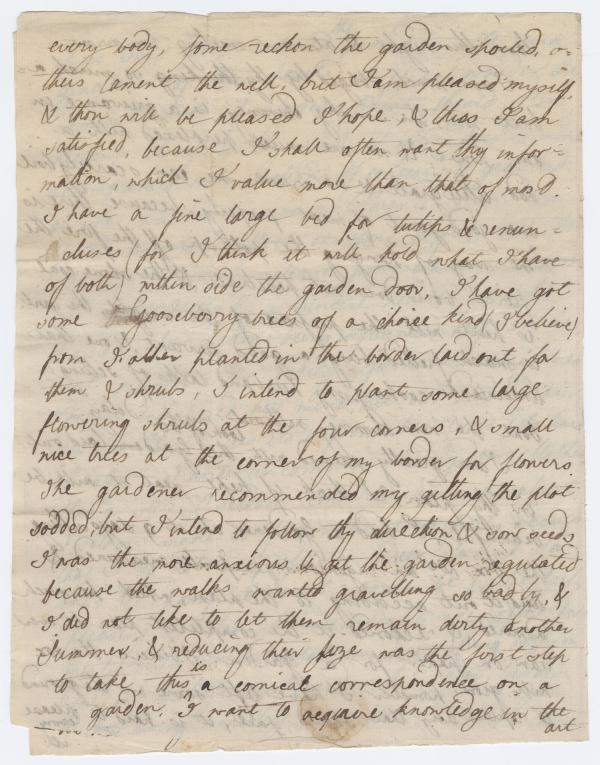 every body, some reckon the garden spoiled, o=
thers lament the well, but I am pleased myself,
& thou will be pleased I hope, & thus I am
satisfied, because I shall often want thy infor=
mation, which I value more than that of most.
I have a fine large bed for tulips & renun=
cluses (for I think it will hold what I have
of both) within side the garden door, I have got
some Gooseberry trees of a choice kind (I believe)
from planted in the border laid out for
them & shrubs, I intend to plant some large
flowering shrubs at the four corners, & small
nice trees at the corner of my border for flowers.
The gardener recommended my getting the plot
sodded, but I intend to follow thy direction & sow seeds
I was the more anxious to get the garden regulated
because the walks wanted gravelling so badly, &
I did not like to let them remain dirty another
Summer, & reducing their size was the first step
to take, this is a comical correspondence on a
garden. I want to acquire knowledge in the
art